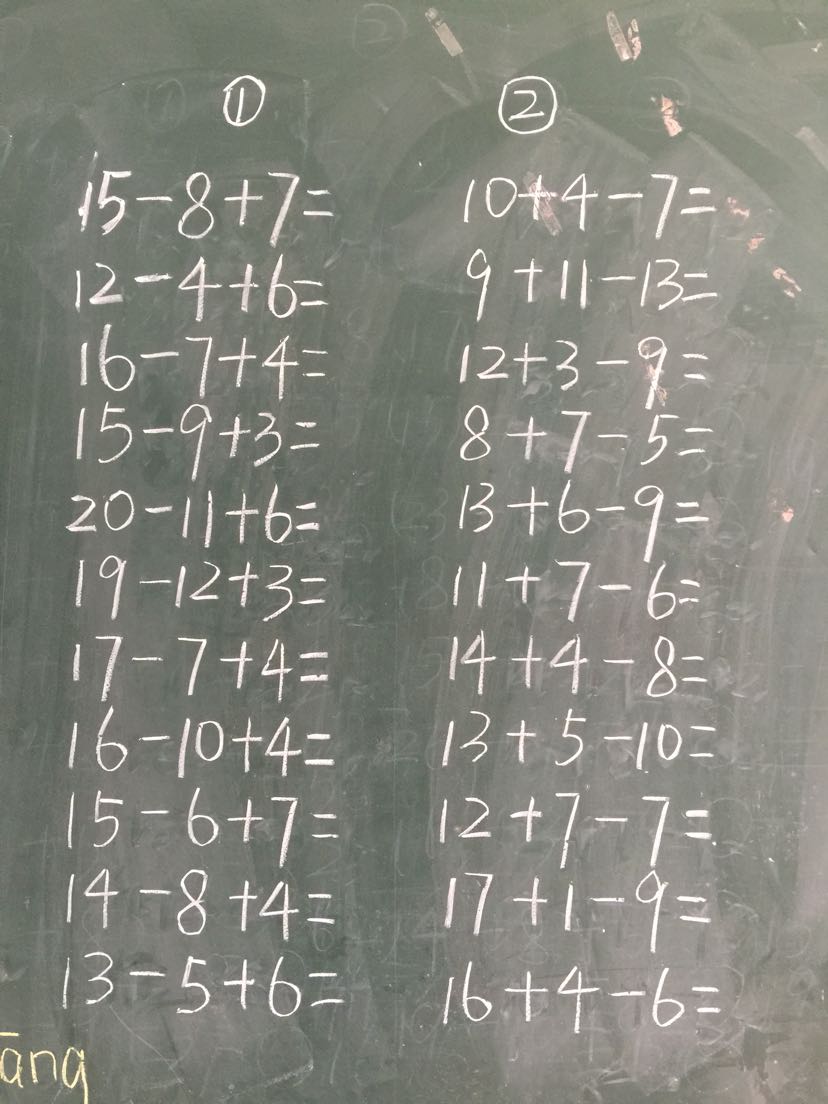 ①
15-8+7=
12-4+6=
16-7+4=
15-9+3=
20-11+6=
19-12+3=
17-7+4=
16-10+4=
15-6+7=
14-8+4=
13-5+6=
②
10+4-7=
9+11-13=
12+3-9=
8+7-5=
13+6-9=
11+7-6=
14+4-8=
13+5-10=
12+7-7=
17+1-9=
16+4-6=
āng